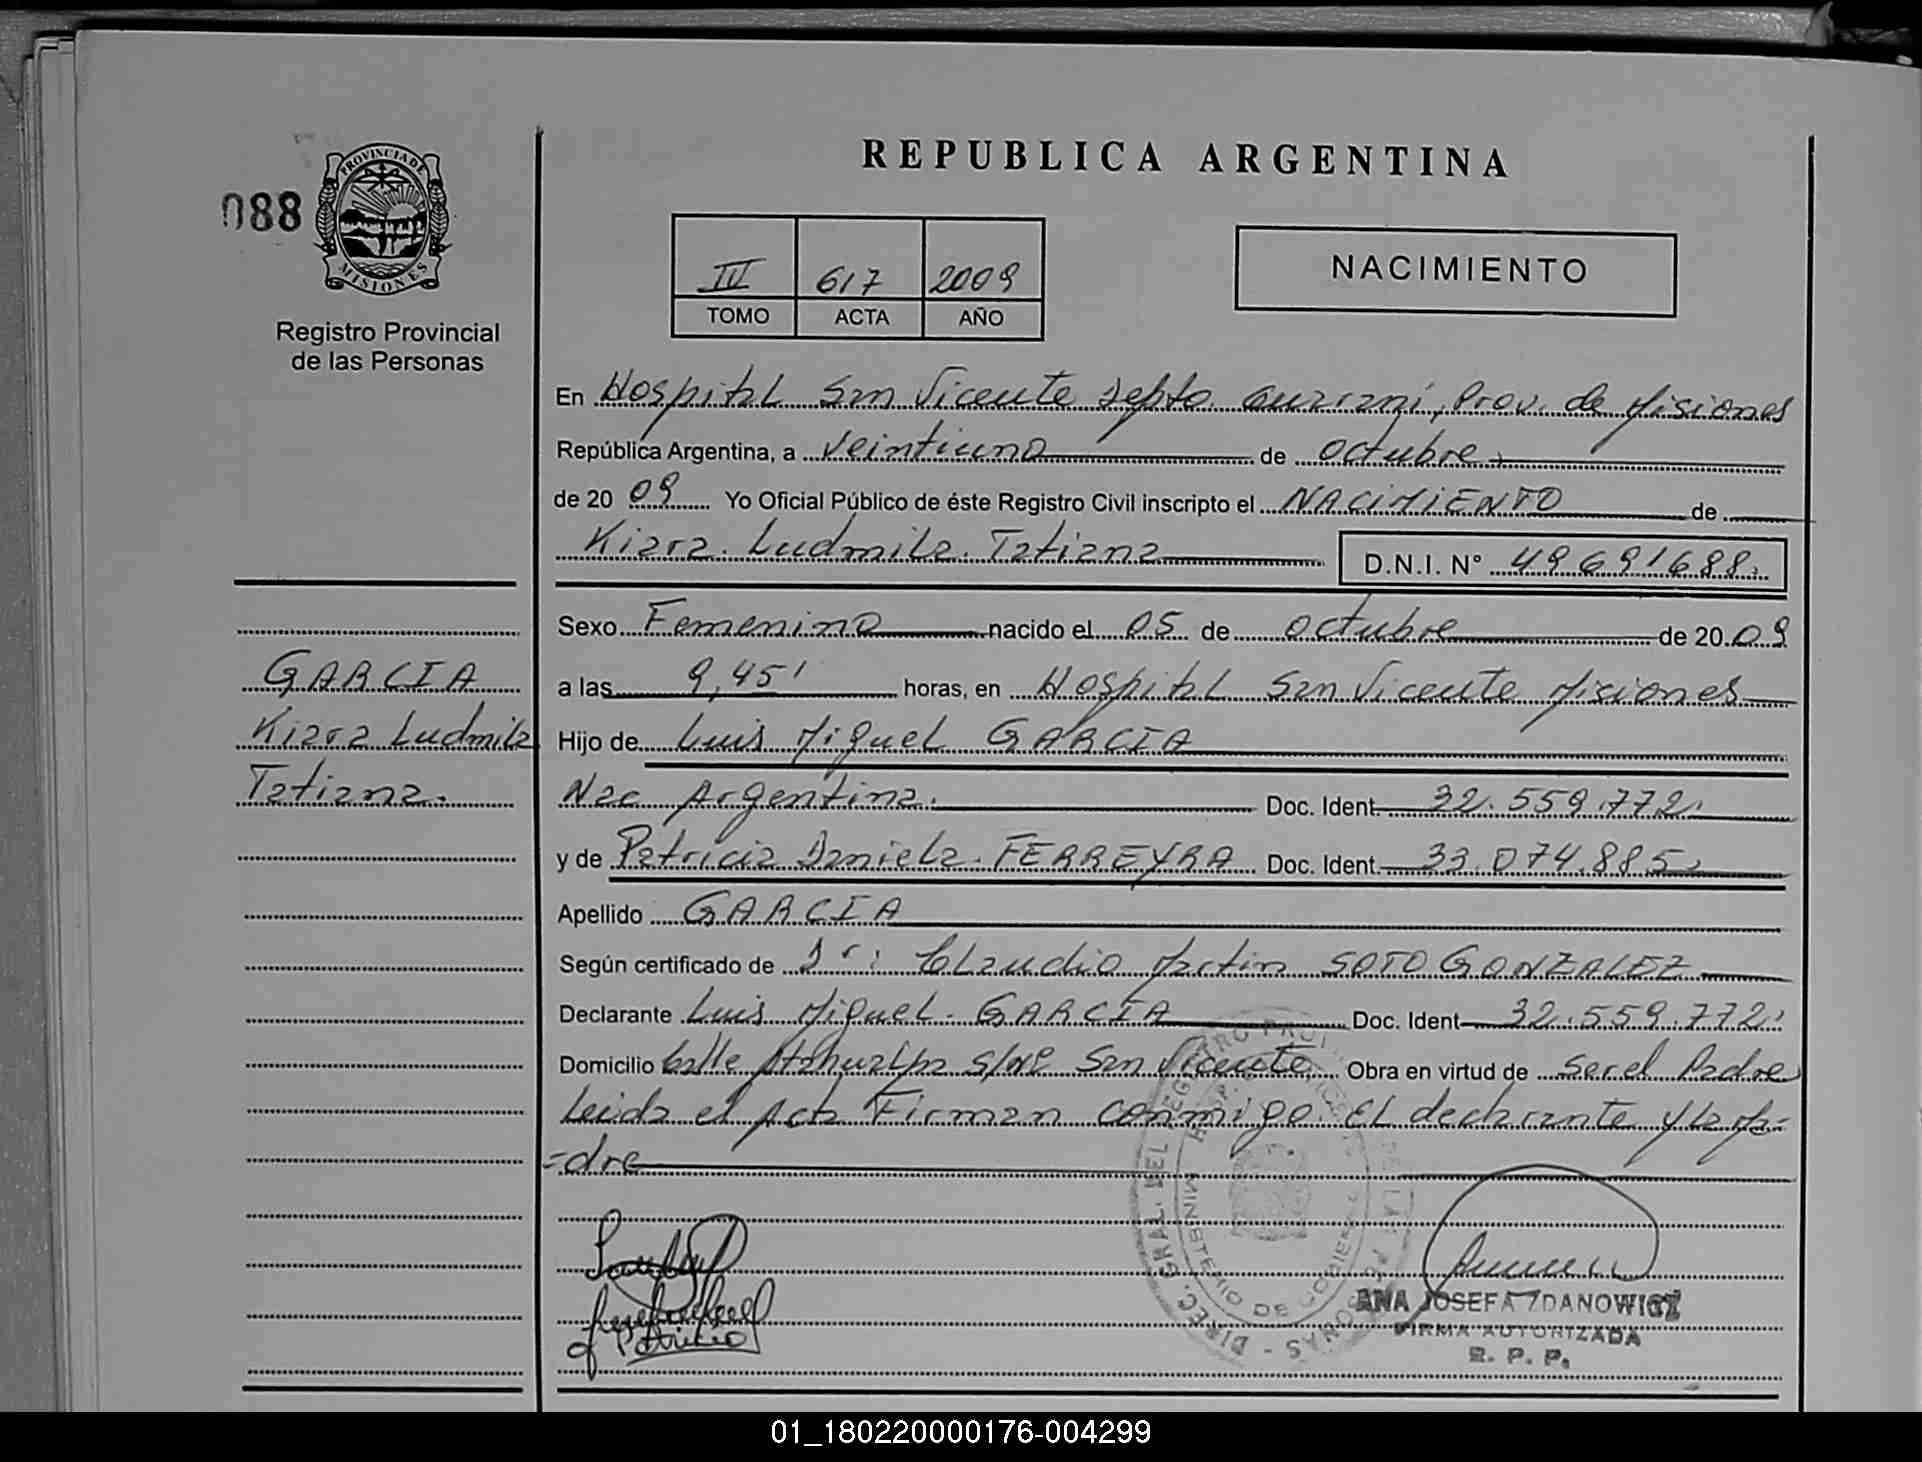 REPUBLICA ARGENTINA
088
PROVINCIA DE
MISIONES
Registro Provincial
de las Personas
IV 617 2009
TOMO ACTA AÑO
NACIMIENTO
En Hospital San Vicente depto. Guaraní, Prov. de Misiones
República Argentina, a Veintiuno de octubre
de 20 09 Yo Oficial Público de éste Registro Civil inscripto el NACIMIENTO de
Kiara Ludmila Tatiana D.N.I. N° 49691688
Sexo Femenino nacido el 05 de octubre de 20 09
a las 9,45' horas, en Hospital San Vicente Misiones
Hijo de Luis Miguel GARCIA
Nac Argentina. Doc. Ident. 32.559.772
y de Patricia Daniela FERREYRA Doc. Ident. 33.074.885
Apellido GARCIA
Según certificado de Dr: Claudio Martin SOTO GONZALEZ
Declarante Luis Miguel GARCIA Doc. Ident 32.559.772
Domicilio Calle Atahualpa s/nº San Vicente, Obra en virtud de ser el Padre
Leida el Acta Firman conmigo El declarante y la Ma=
=dre
GARCIA
Kiara Ludmila
Tatiana.
DIREC. GRAL. DEL REGISTRO
MINISTERIO DE GOBIERNO
ANA JOSEFA ZDANOWICZ
FIRMA AUTORIZADA
R. P. P.
01_180220000176-004299